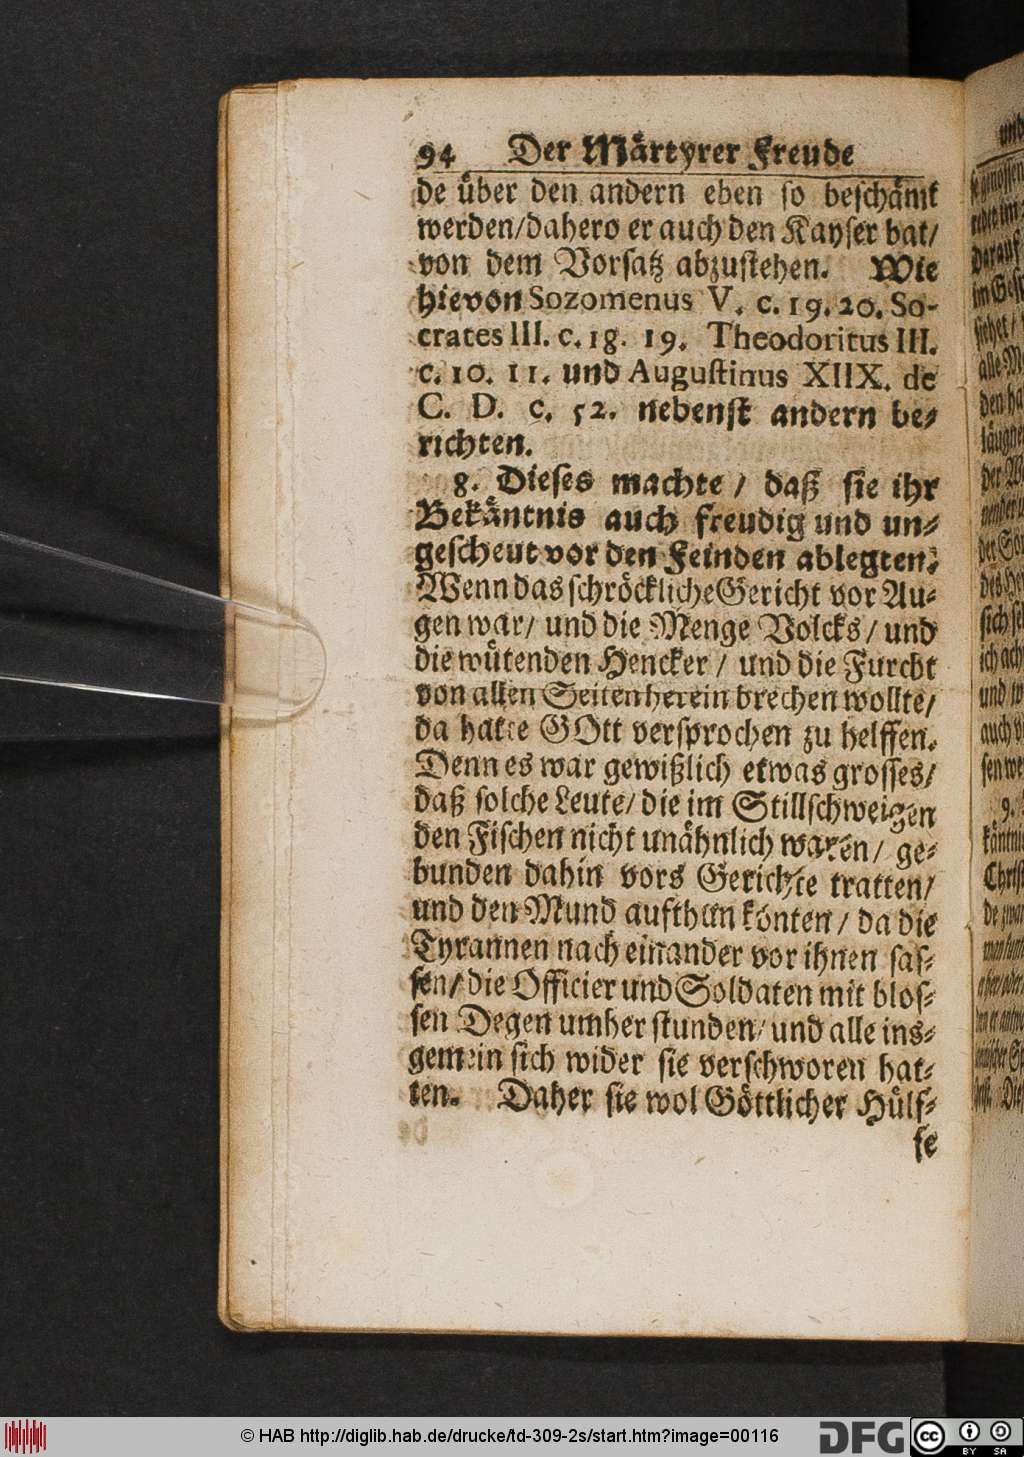 94 Der Märtyrer Freude
de über den andern eben so beschämt
werden/dahero er auch den Kayser bat/
von dem Vorsatz abzustehen. Wie
hievon Sozomenus V. c. 19. 20. So-
crates III. c. 18. 19. Theodoritus III.
c. 10. 11. und Augustinus XIIX. de
C. D. c. 52. nebenst andern be-
richten.
8. Dieses machte / daß sie ihr
Bekäntnis auch freudig und un-
gescheut vor den Feinden ablegten.
Wenn das schröckliche Gericht vor Au-
gen war/ und die Menge Volcks / und
die wütenden Hencker / und die Furcht
von allen Seiten herein brechen wollte/
da hatte GOtt versprochen zu helffen.
Denn es war gewißlich etwas grosses/
daß solche Leute/ die im Stillschweigen
den Fischen nicht unähnlich waren/ ge-
bunden dahin vors Gerichte tratten/
und den Mund aufthun könten / da die
Tyrannen nach einander vor ihnen sas-
sen/ die Officier und Soldaten mit blos-
sen Degen umher stunden/ und alle ins-
gemein sich wider sie verschworen hat-
ten. Daher sie wol Göttlicher Hülf-
fe
und
9.
© HAB http://diglib.hab.de/drucke/td-309-2s/start.htm?image=00116
DFG
cc
BY SA